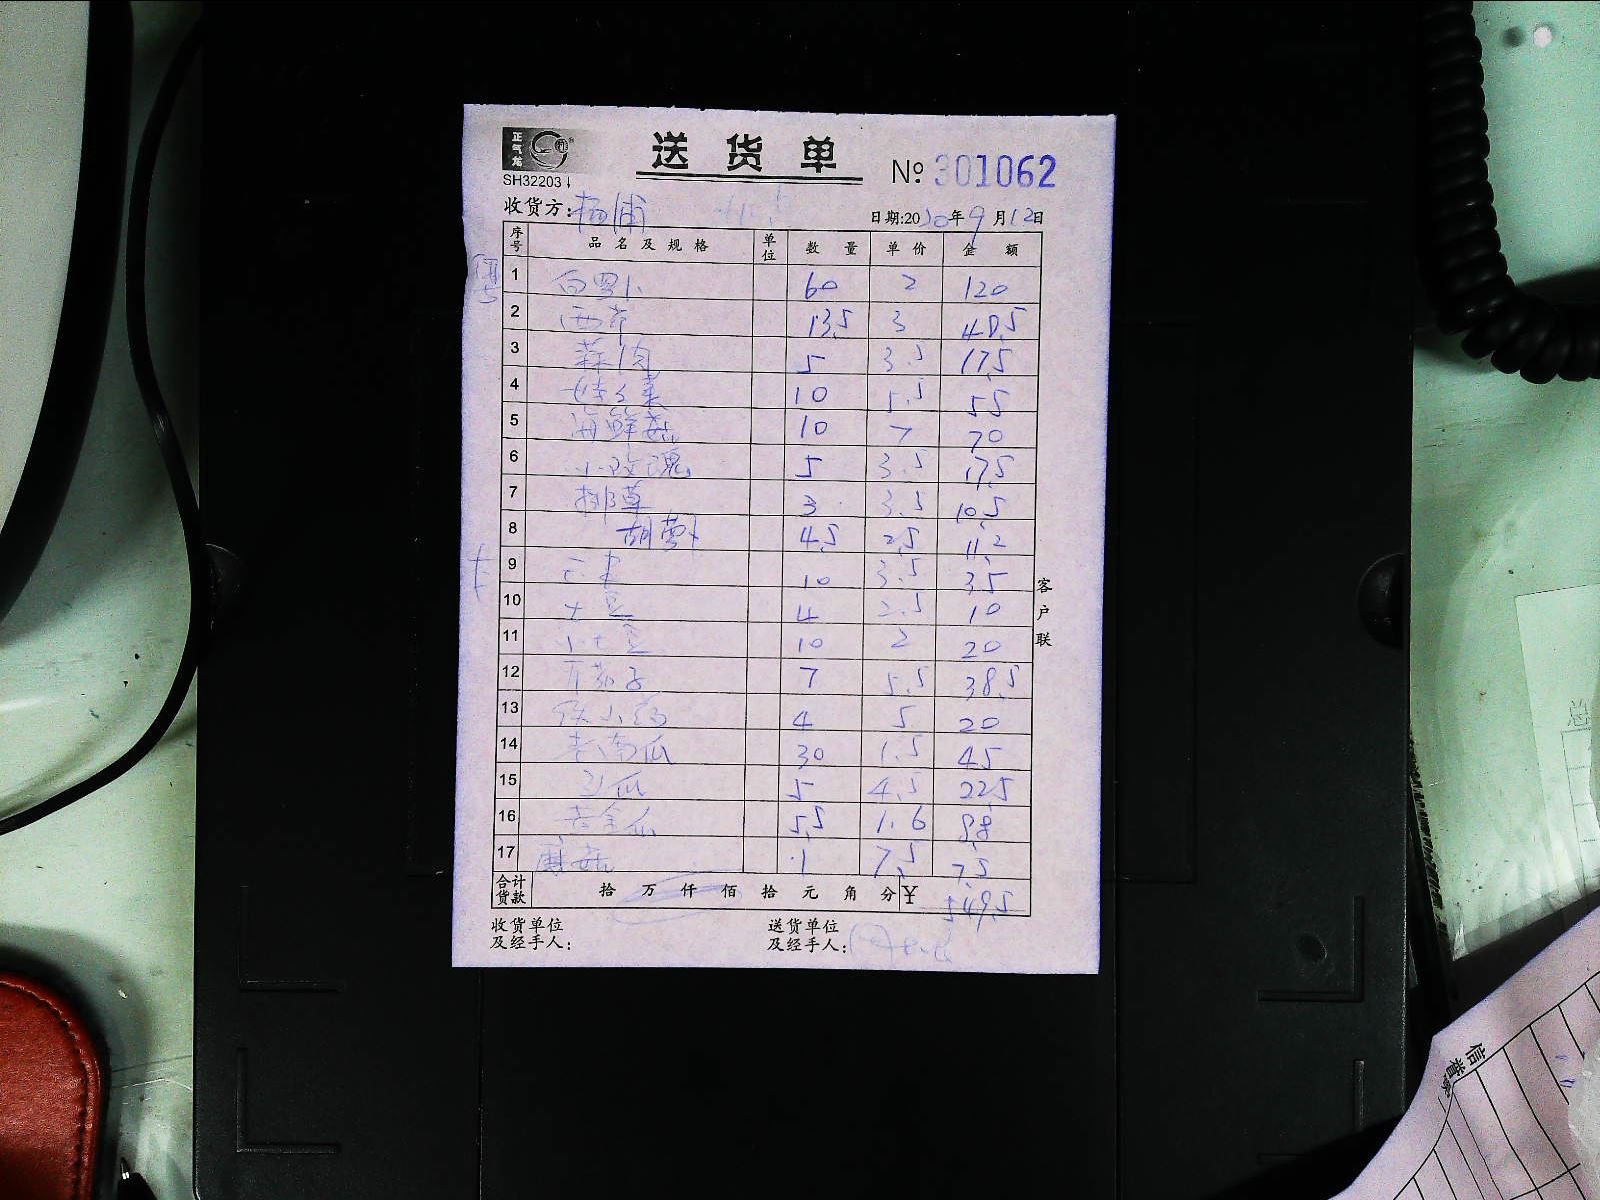 正气龙
送货单
SH32203
№ 301062
收货方: 杨浦
日期:2020年9月12日
序号 品名及规格 单位 数量 单价 金额
1 白罗卜 60 2 120
2 西芹 13.5 3 40.5
3 蒜肉 5 3.5 17.5
4 娃娃菜 10 5.5 55
5 海鲜菇 10 7 70
6 小玫瑰 5 3.5 17.5
7 3 3.5 10.5
8 胡萝卜 4.5 2.5 11.2
9 10 3.5 35
10 土豆 4 2.5 10
11 小土豆 10 2 20
12 茄子 7 5.5 38.5
13 4 5 20
14 老南瓜 30 1.5 45
15 瓜 5 4.5 22.5
16 黄金瓜 5.5 1.6 8.8
17 蘑菇 1 7.5 7.5
合计货款 拾万仟佰拾元角分 ¥ 549.5
收货单位及经手人:
送货单位及经手人:
客户联
信誉